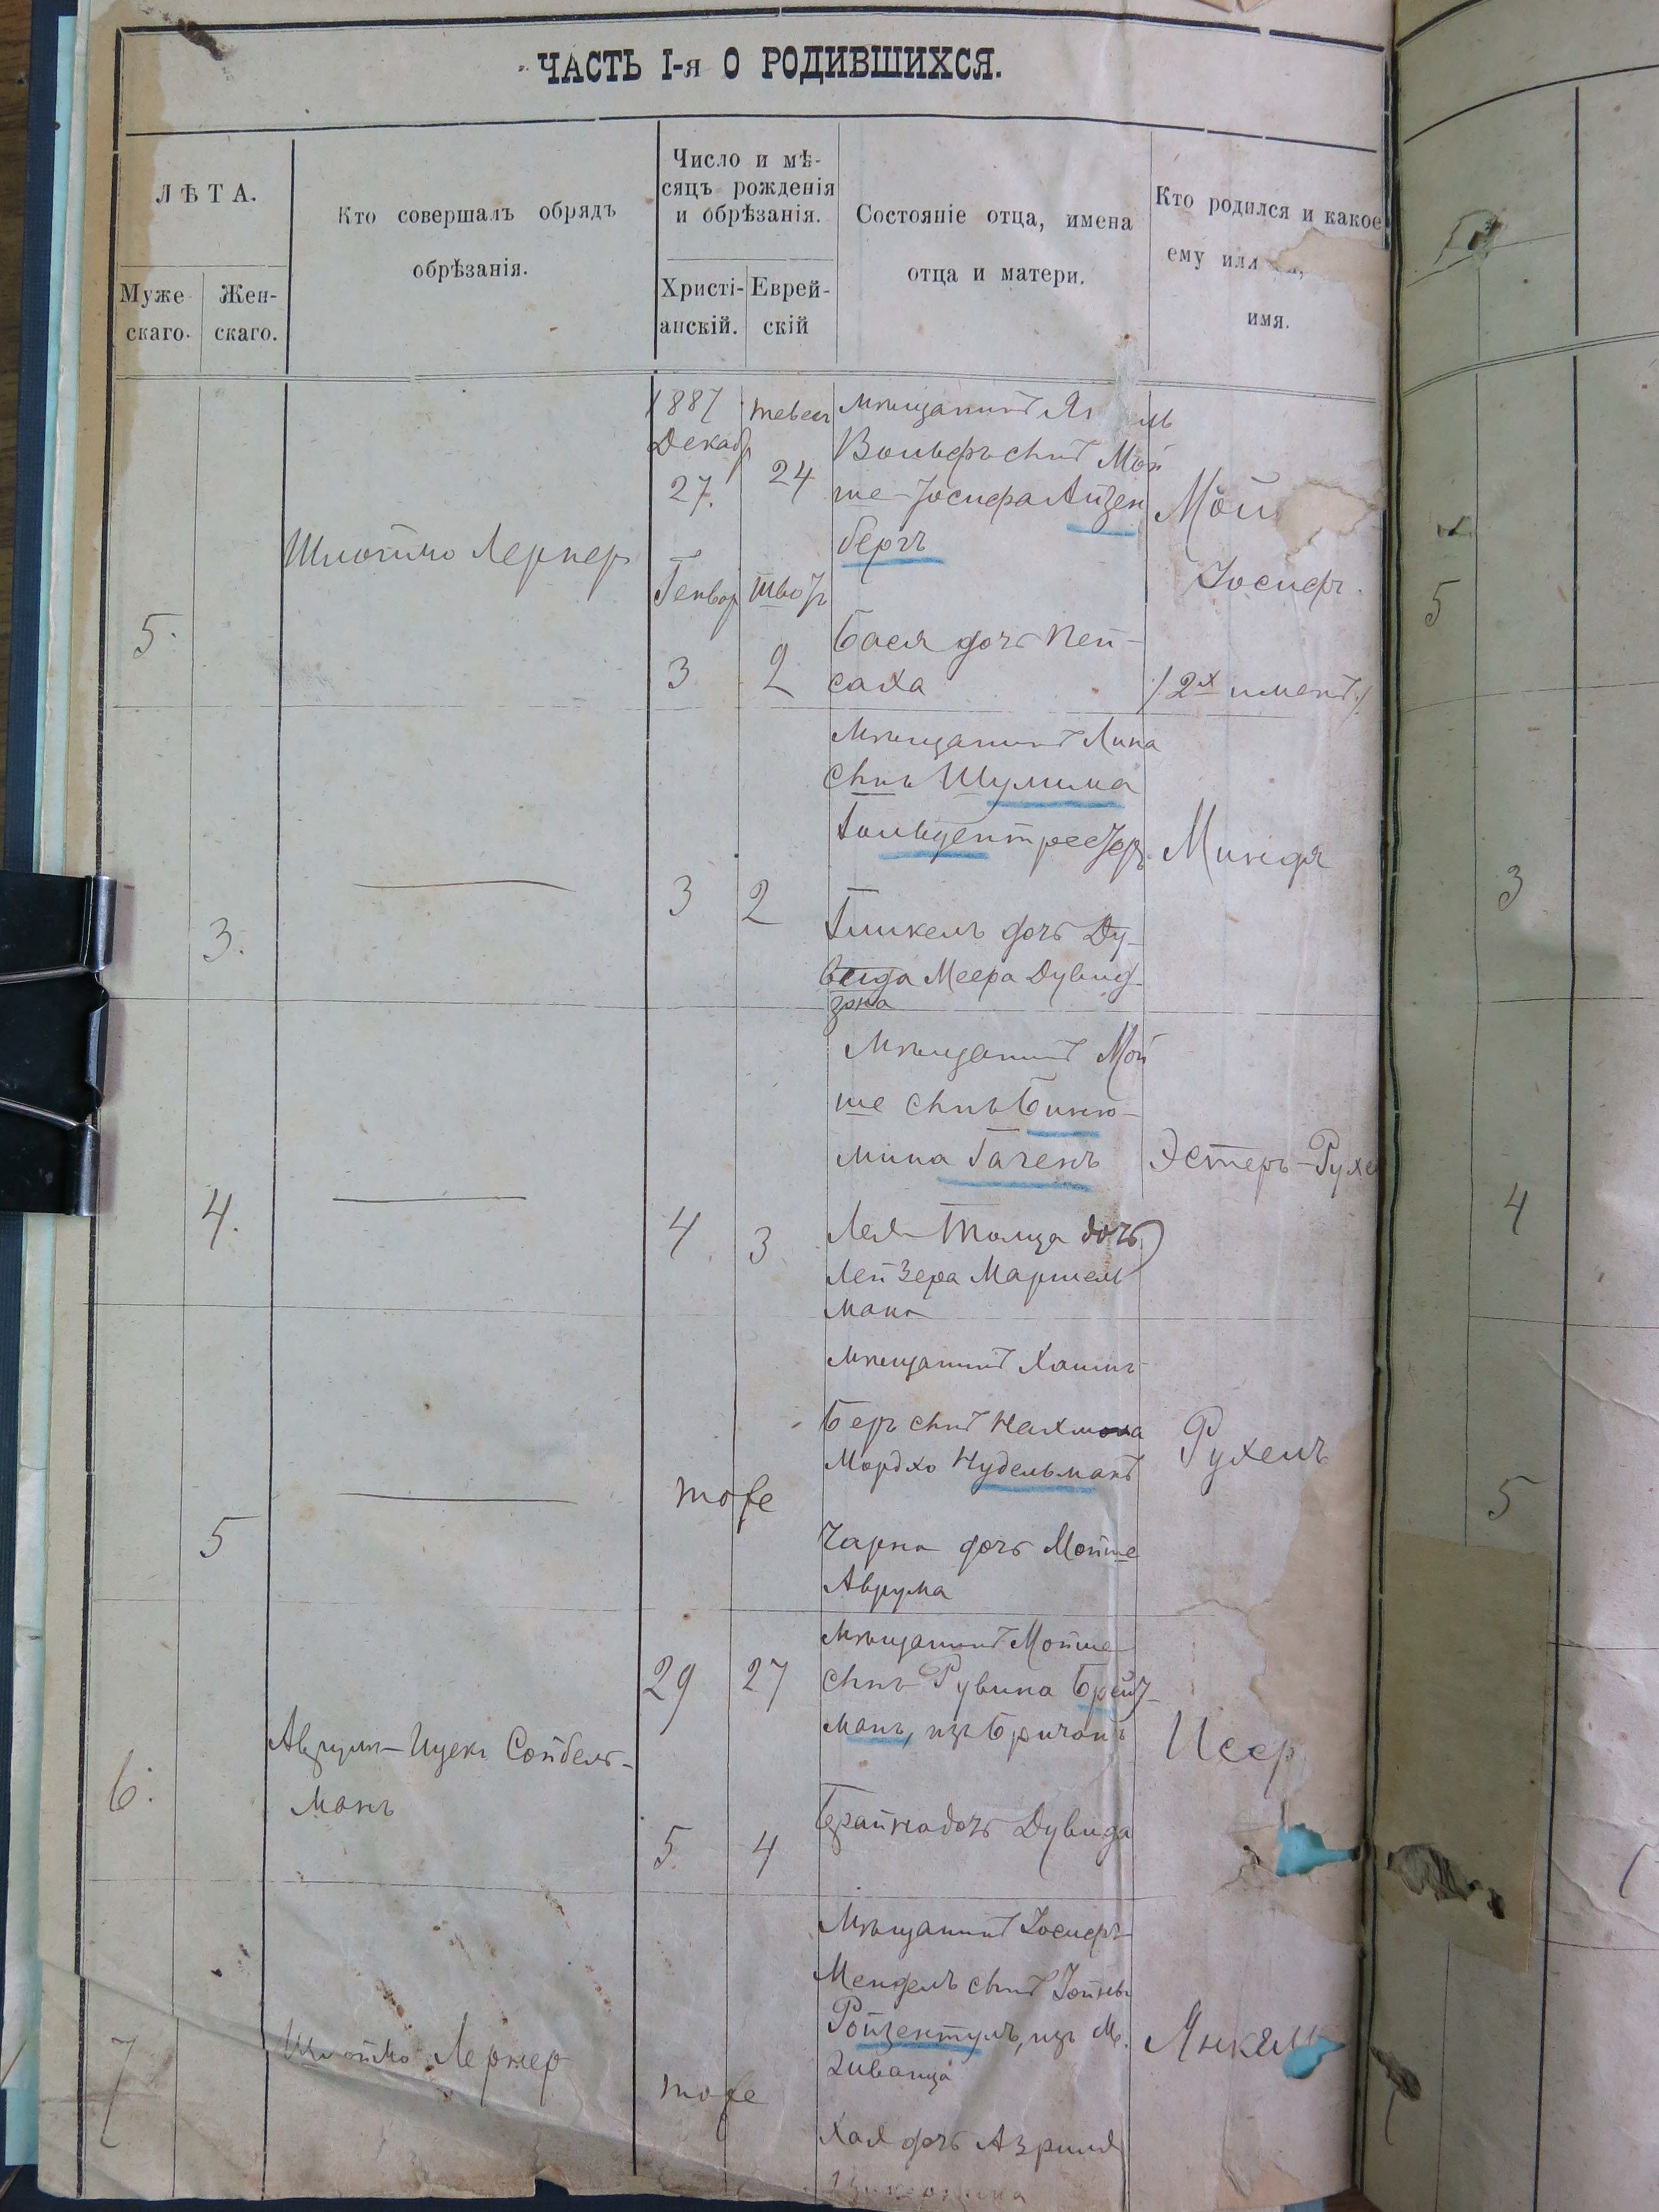 ЧАСТЬ I-я О РОДИВШИХСЯ.
ЛѢТА.
Муже
скаго.
Жен-
скаго.
Кто совершалъ обрядъ
обрѣзанія.
Число и мѣ-
сяцъ рожденія
и обрѣзанія.
Христі-
анскій.
Еврей-
скій
Состояніе отца, имена
отца и матери.
Кто родился и какое
ему или
имя.
5.
Шлоймо Лернер
1887
Декабр
27.
Генвар
3
тевеса
24
2
мѣщанинъ
Вольфъ сынъ Мой
ше-Іосифа Айзен
бергъ
Бася дочь Пей-
саха
Іосифъ.
/2х именъ/
3.
3
2
Мѣщанинъ Липа
сынъ Шулима
Гольдентресзеръ
дочь Ду-
вида Меера Дувид-
зона
Миндя
4.
4
3
Мѣщанинъ Мой
ше сынъ Биню-
мина
Лея дочь
Лейзера
мана
Эстеръ-Рухе
5
тоже
мѣщанинъ Хаимъ
Беръ сынъ Нахмана
Мордхо Нудельманъ
Чарна дочь Мойше
Аврума
Рухель
6.
Аврумъ-Ицекъ Сойбель-
манъ
29
27
5.
4
Мѣщанинъ Мойше
сынъ Рувина Брейз-
манъ, изъ Бричанъ
Брайна дочь Дувида
Исер
7
Шлоймо Лернер
тоже
Мѣщанинъ Іосифъ
Мендель сынъ Іойны
Ройзентулъ, изъ М.
Хая дочь Азриля
Янкель
3
4
5
5